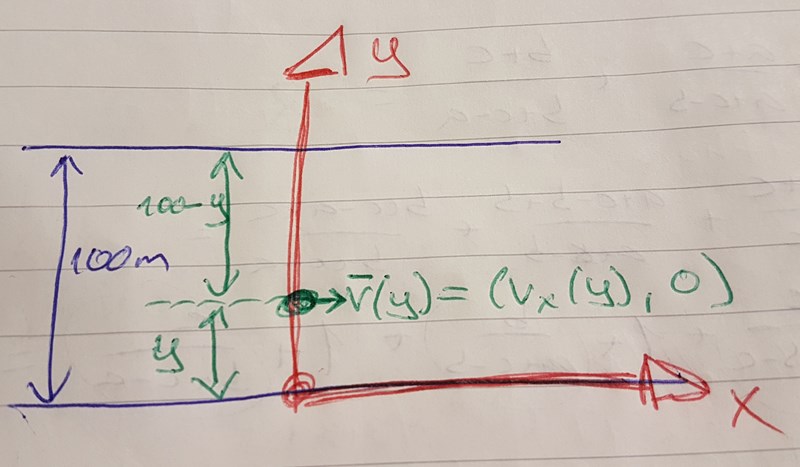 y
100-y
100m
v̄(y) = (vₓ(y), 0)
y
x